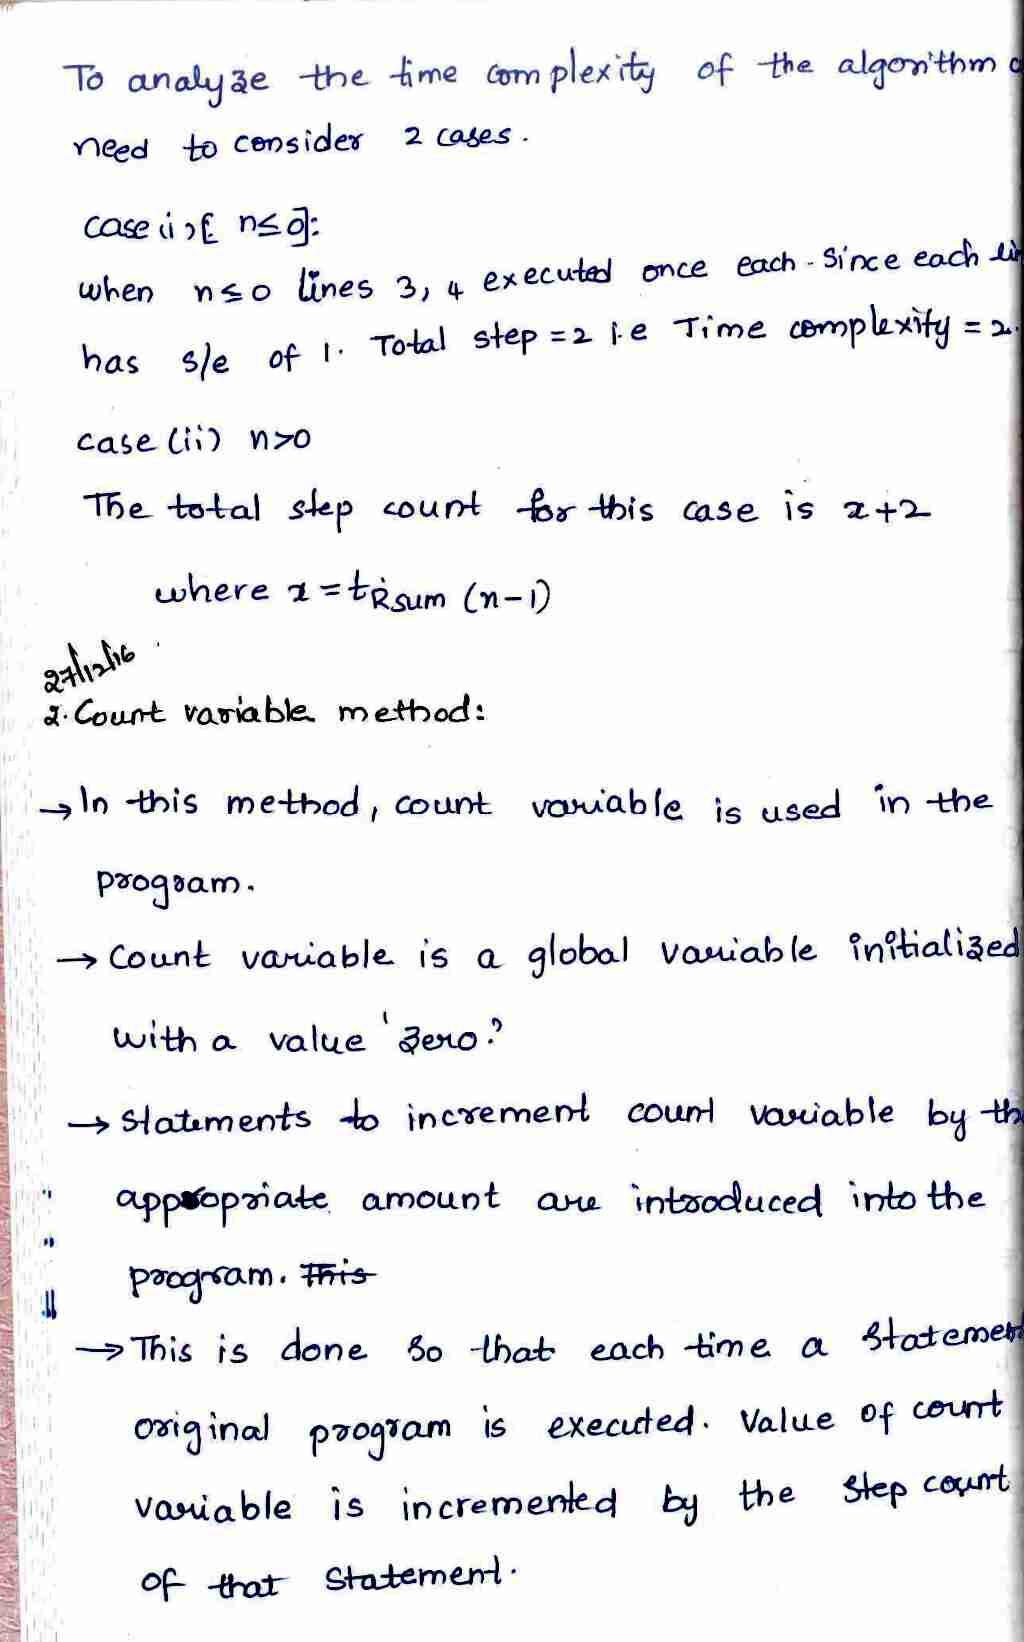 To analyze the time complexity of the algorithm
need to consider 2 cases.
case (i) [ n≤0]:
when n≤0 lines 3, 4 executed once each. Since each
has s/e of 1. Total step = 2 i.e Time complexity = 2.
case (ii) n>0
The total step count for this case is x+2
where x = tRsum (n-1)
27/12/16
2. Count variable method:
→ In this method, count variable is used in the
program.
→ Count variable is a global variable initialized
with a value 'zero'.
→ Statements to increment count variable by
appropriate amount are introduced into the
program. This
→ This is done so that each time a
original program is executed. Value of count
variable is incremented by the step count
of that statement.